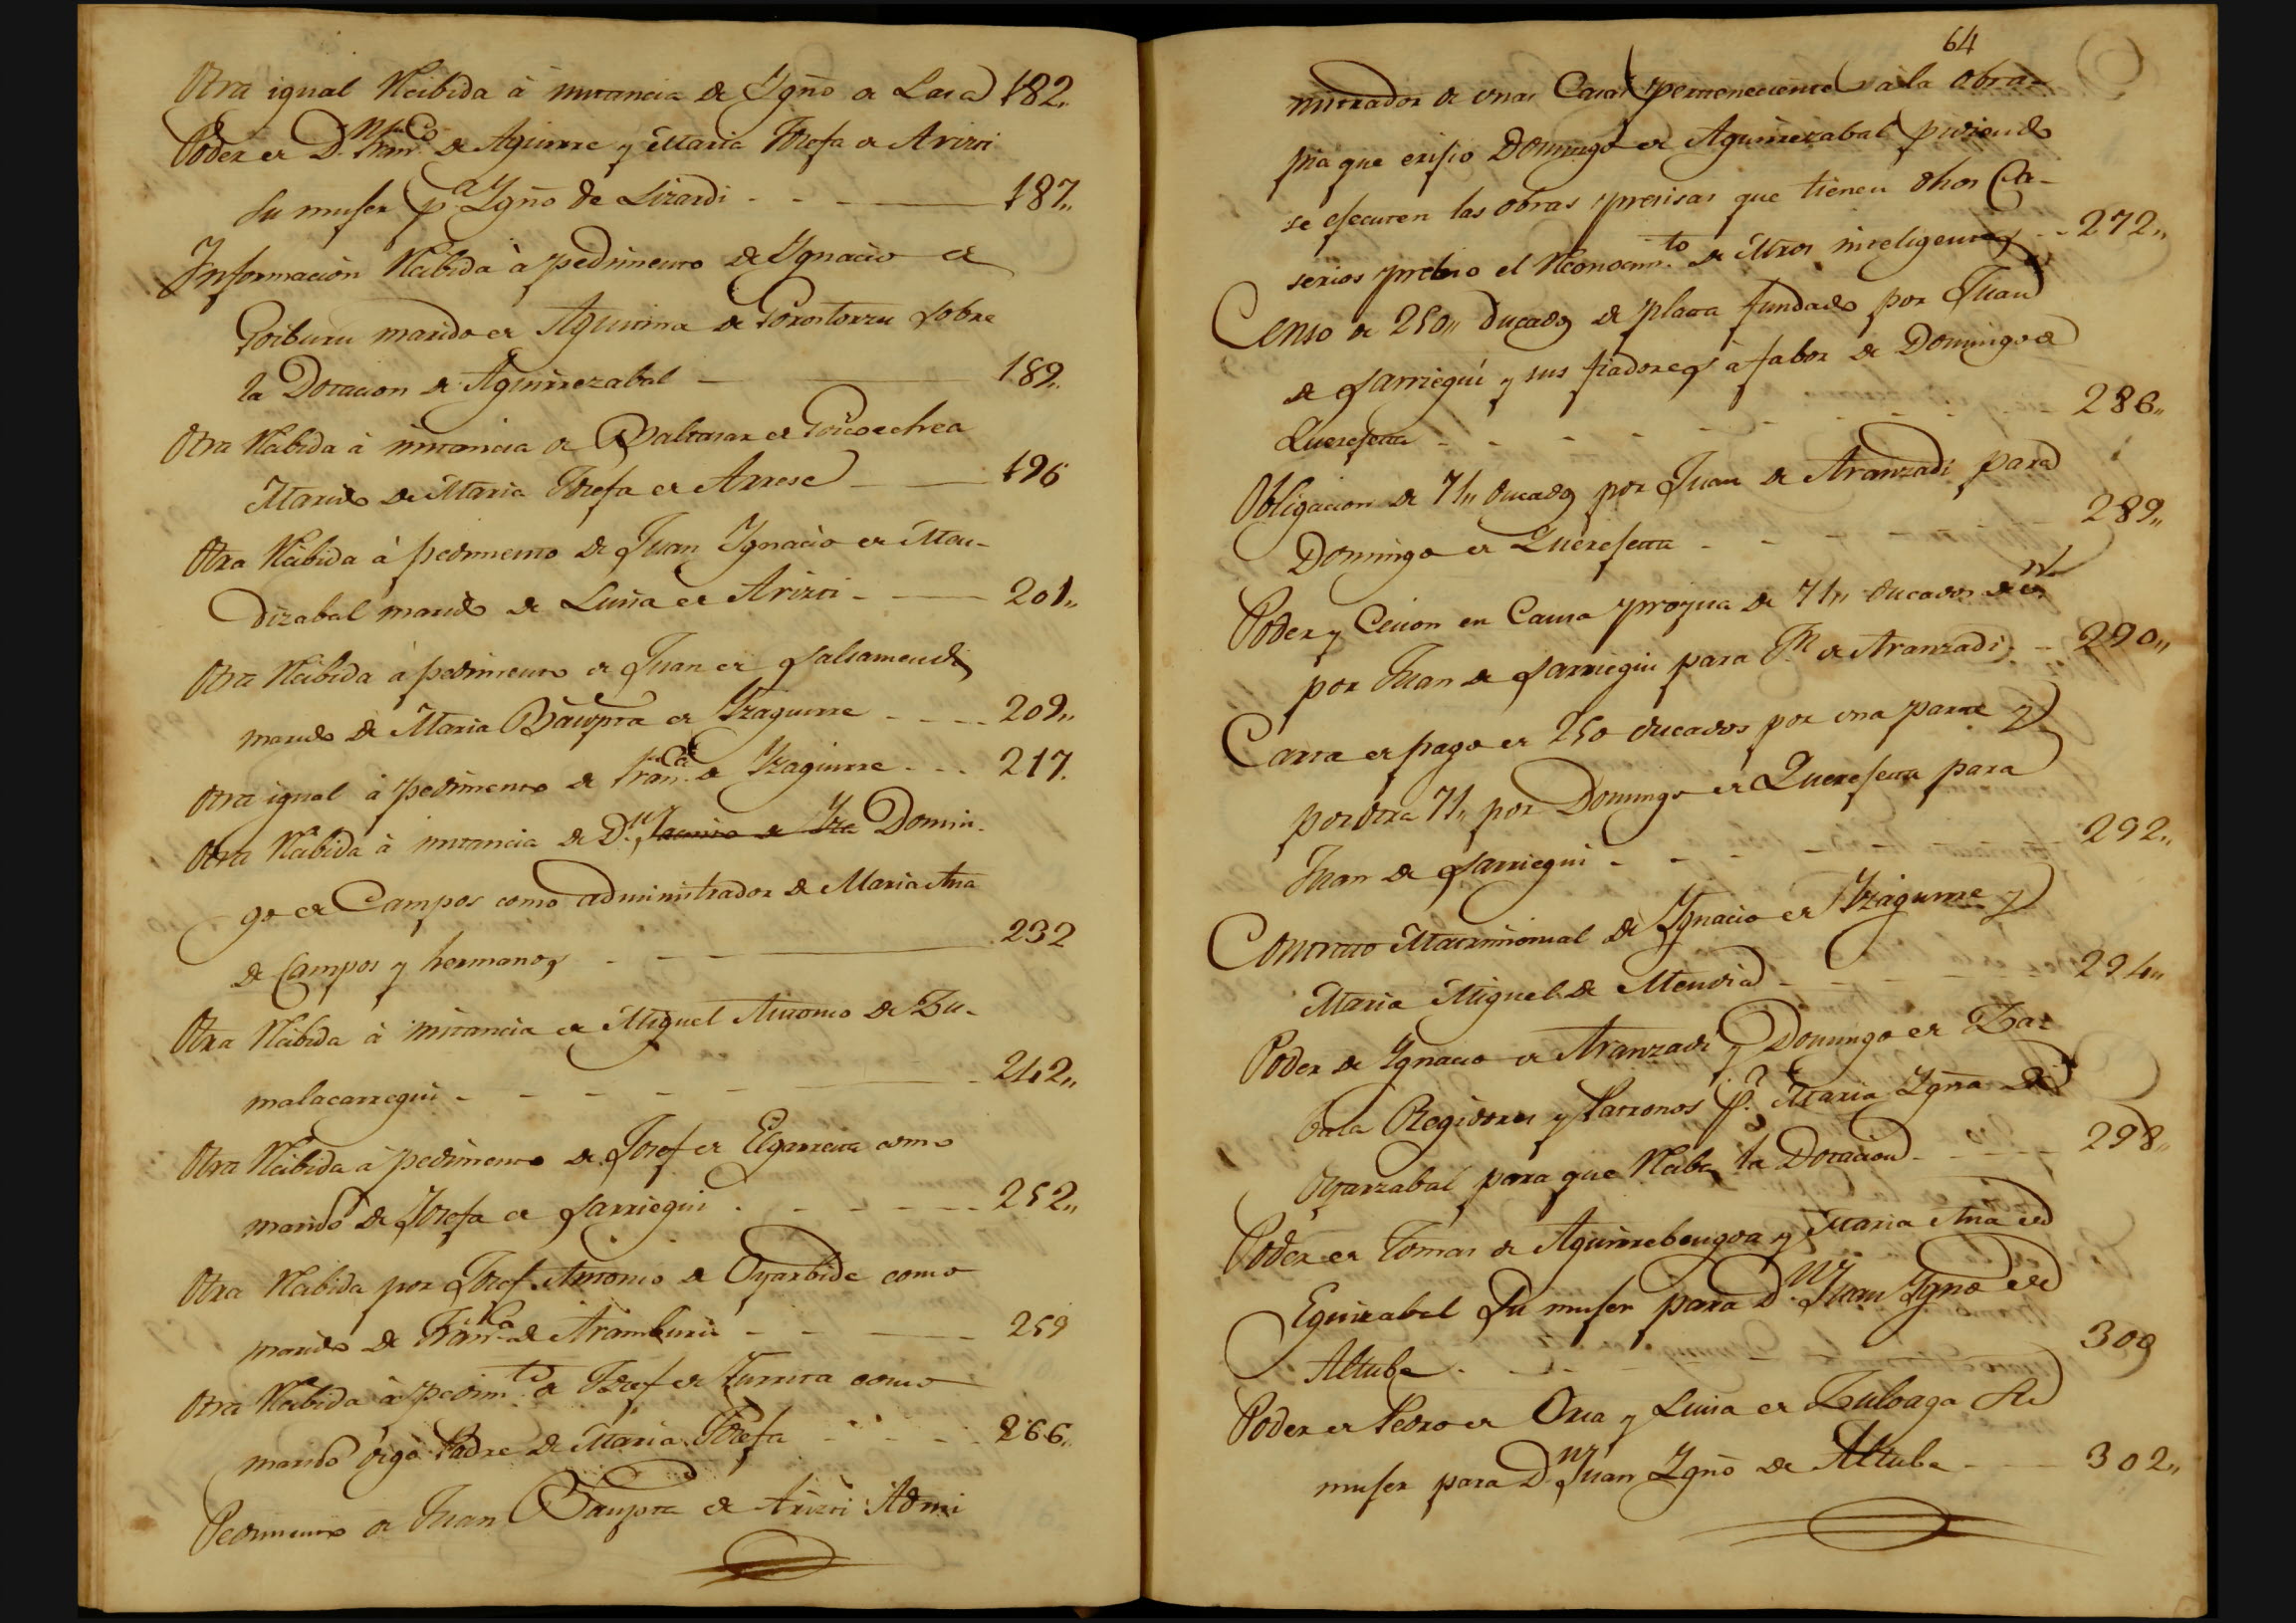 Otra igual Recibida à instancia de Ygnº de Lasa 182,,
Poder de D.n Franco de Aguirre y Maria Josefa de Arizti
su muger p.a Ygnº de Lizardi - - - 187,,
Información Recibida à pedimento de Ygnacio de
Goiburu marido de Agustina de Gorostorzu sobre
la Dotacion de Aguirrezabal - 189,,
Otra Recibida à instancia de Baltasar de Goicoechea
Marido de Maria Josefa de Arrese - 196
Otra Recibida à pedimento de Juan Ygnacio de Men-
dizabal marido de Luisa de Arizti - 201,,
Otra Recibida à pedimento de Juan de Salsamendi
marido de Maria Baupta de Yzaguirre - - - - 209,,
Otra igual à pedimento de Franca de Yzaguirre - - - 217.
Otra Recibida à instancia de D.n Ygnacio de Yza Domin-
go de Campos como administrador de Maria Ana
de Campos y hermanos - - - 232
Otra Recibida à instancia de Miguel Antonio de Zu-
malacarregui - - - - - 242,,
Otra Recibida à pedimento de Josef de Elgarresta como
marido de Josefa de Sarriegui - - - - - 252,,
Otra Recibida por Josef Antonio de Oyarbide como
marido de Franca de Aramburu - - - 259
Otra Recibida à pedim.to de Josef de Yurrita como
marido digo Padre de Maria Josefa - - - - 266,,
Pedimento de Juan Baupta de Arizti Admi
64
nistrador de unas Casas pertenecientes à la obra-
pia que erigio Domingo de Aguirrezabal pidiendo
se egecuten las obras precisas que tienen dhos Ca-
serios previo el Reconocim.to de Mros inteligentes - - 272,,
Censo de 250,, ducados de plata fundado por Juan
de Sarriegui y sus fiadores à fabor de Domingo de
Querejeta - - - - - - - - 286,,
Obligacion de 71,, ducados por Juan de Aranzadi para
Domingo de Querejeta - - - - - 289,,
Poder y Cesion en Causa propia de 71,, ducados de vn
por Juan de Sarriegui para Jn de Aranzadi - - 290,,
Carta de pago de 250 ducados por una parte y
por otra 71,, por Domingo de Querejeta para
Juan de Sarriegui - - - - - - 292,,
Contrato Matrimonial de Ygnacio de Yzaguirre y
Maria Miguel de Mendia - - - - - 294,,
Poder de Ygnacio de Aranzadi y Domingo de Za-
bala Regidores y Patronos p.a Maria Ygna de
Oyarzabal para que Reciba la Dotacion - - - - 298,,
Poder de Tomas de Aguirrebengoa y Maria Ana de
Eguizabal su muger para D.n Juan Ygnº de
Altube - - - - 300
Poder de Pedro de Oria y Luisa de Zuloaga su
muger para D.n Juan Ygnº de Altube - - 302,,